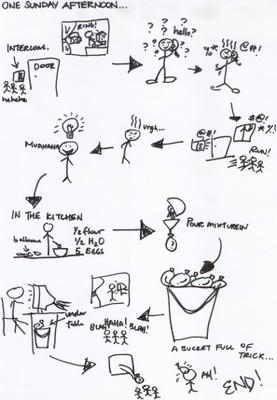 ONE SUNDAY AFTERNOON...
RING!
INTERCOM.
DOOR
hehehe
? ? ? hello? ? ? ?
?!*. @#!
@!
#@!
*%!
RUN!
urgh...
MUAHAHA
IN THE KITCHEN
balloons
1/2 flour
1/2 H2O
5 EGGS
POUR MIXTURE IN
under
table
HAHA!
BLAH! BLAH!
A BUCKET FULL OF
TRICK...
AH!
END!